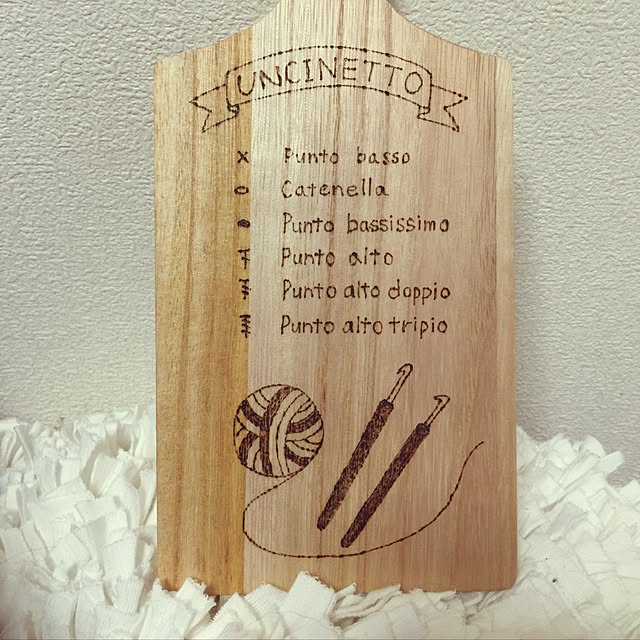 UNCINETTO
x Punto basso
o Catenella
Punto bassissimo
Punto alto
Punto alto doppio
Punto alto tripio